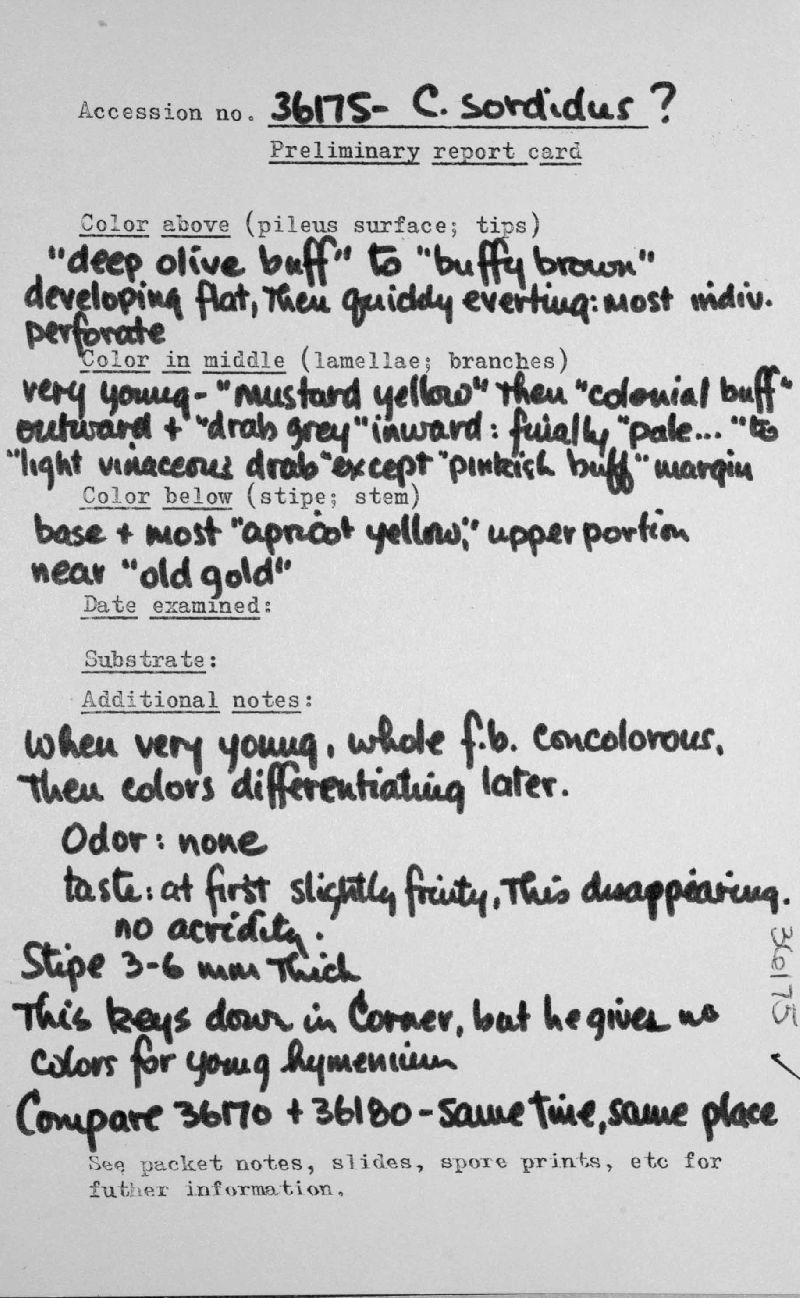 Accession no. 36175- C. sordidus?
Preliminary report card
Color above (pileus surface; tips)
"deep olive buff" to "buffy brown"
developing flat, then quickly everting: most indiv.
perforate
Color in middle (lamellae; branches)
very young - "mustard yellow" then "colonial buff"
outward + "drab grey" inward: finally "pale..." to
"light vinaceous drab" except "pinkish buff" margin
Color below (stipe; stem)
base + most "apricot yellow;" upper portion
near "old gold"
Date examined:
Substrate:
Additional notes:
When very young, whole f.b. concolorous,
then colors differentiating later.
Odor: none
taste: at first slightly fruity, this disappearing.
no acridity.
Stipe 3-6 mm thick
This keys down in Corner, but he gives no
colors for young hymenium
Compare 36170 + 36180 - same time, same place
36175
See packet notes, slides, spore prints, etc for
futher information.